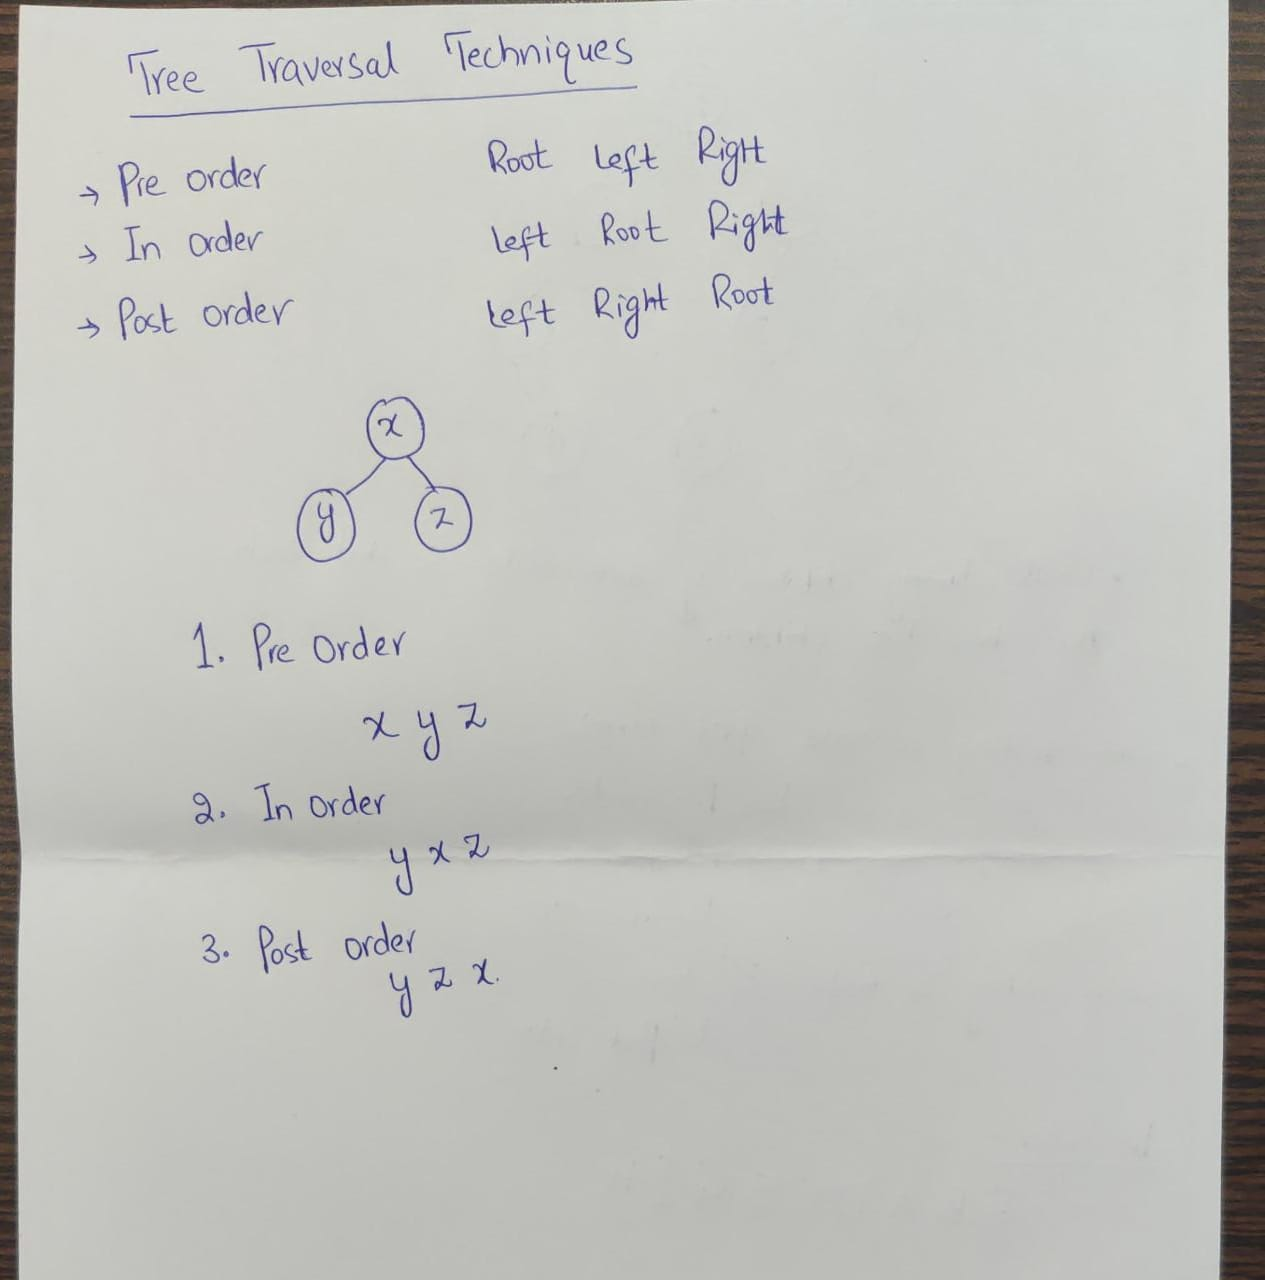 Tree Traversal Techniques
→ Pre order Root Left Right
→ In order Left Root Right
→ Post order Left Right Root
x
y z
1. Pre Order
x y z
2. In order
y x z
3. Post order
y z x.